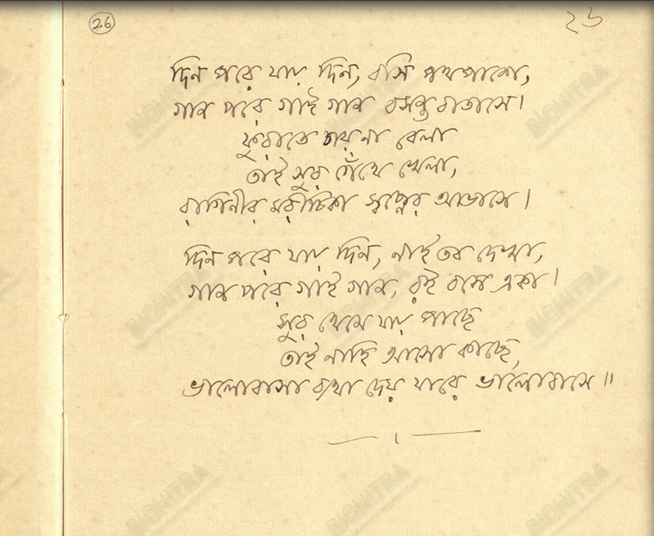 26
২৬
দিন পরে যায় দিন, বসি পথপাশে,
গান পরে গাই গান বসন্ত বাতাসে।
ফুরাতে চায় না বেলা
তাই সুর গেঁথে খেলা,
রাগিনীর মরীচিকা স্বপ্নের আভাসে।
দিন পরে যায় দিন, নাই তব দেখা,
গান পরে গাই গান, রই বসে একা।
সুর থেমে যায় পাছে
তাই নাহি আসো কাছে,
ভালোবাসা ব্যথা দেয় যারে ভালোবাসে॥
BICHITRA